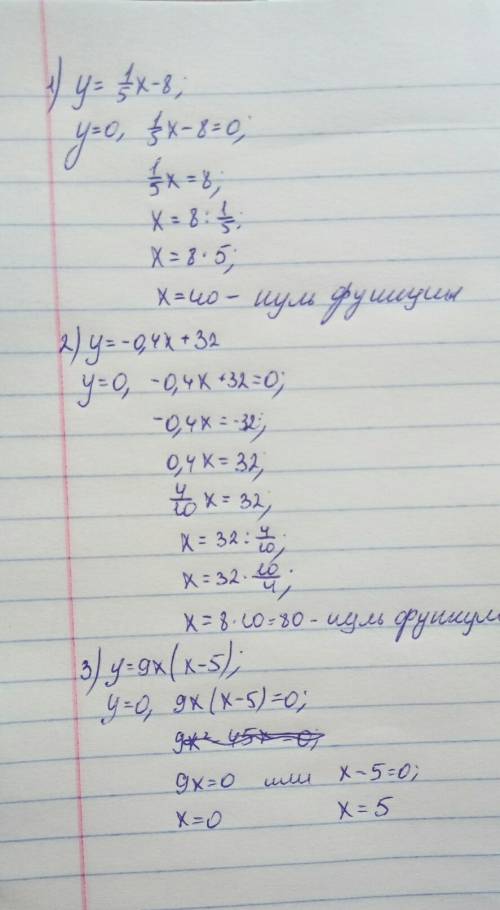 1) y = 1/5 x - 8;
y=0, 1/5 x - 8 = 0;
1/5 x = 8;
x = 8 : 1/5;
x = 8 · 5;
x = 40 - нуль функции
2) y = -0,4x + 32
y=0, -0,4x + 32 = 0;
-0,4x = -32;
0,4x = 32,
4/10 x = 32,
x = 32 : 4/10;
x = 32 · 10/4;
x = 8 · 10 = 80 - нуль функции
3) y = 9x(x-5);
y=0, 9x(x-5) = 0;
9x² - 45x = 0;
9x = 0 или x - 5 = 0;
x = 0 x = 5